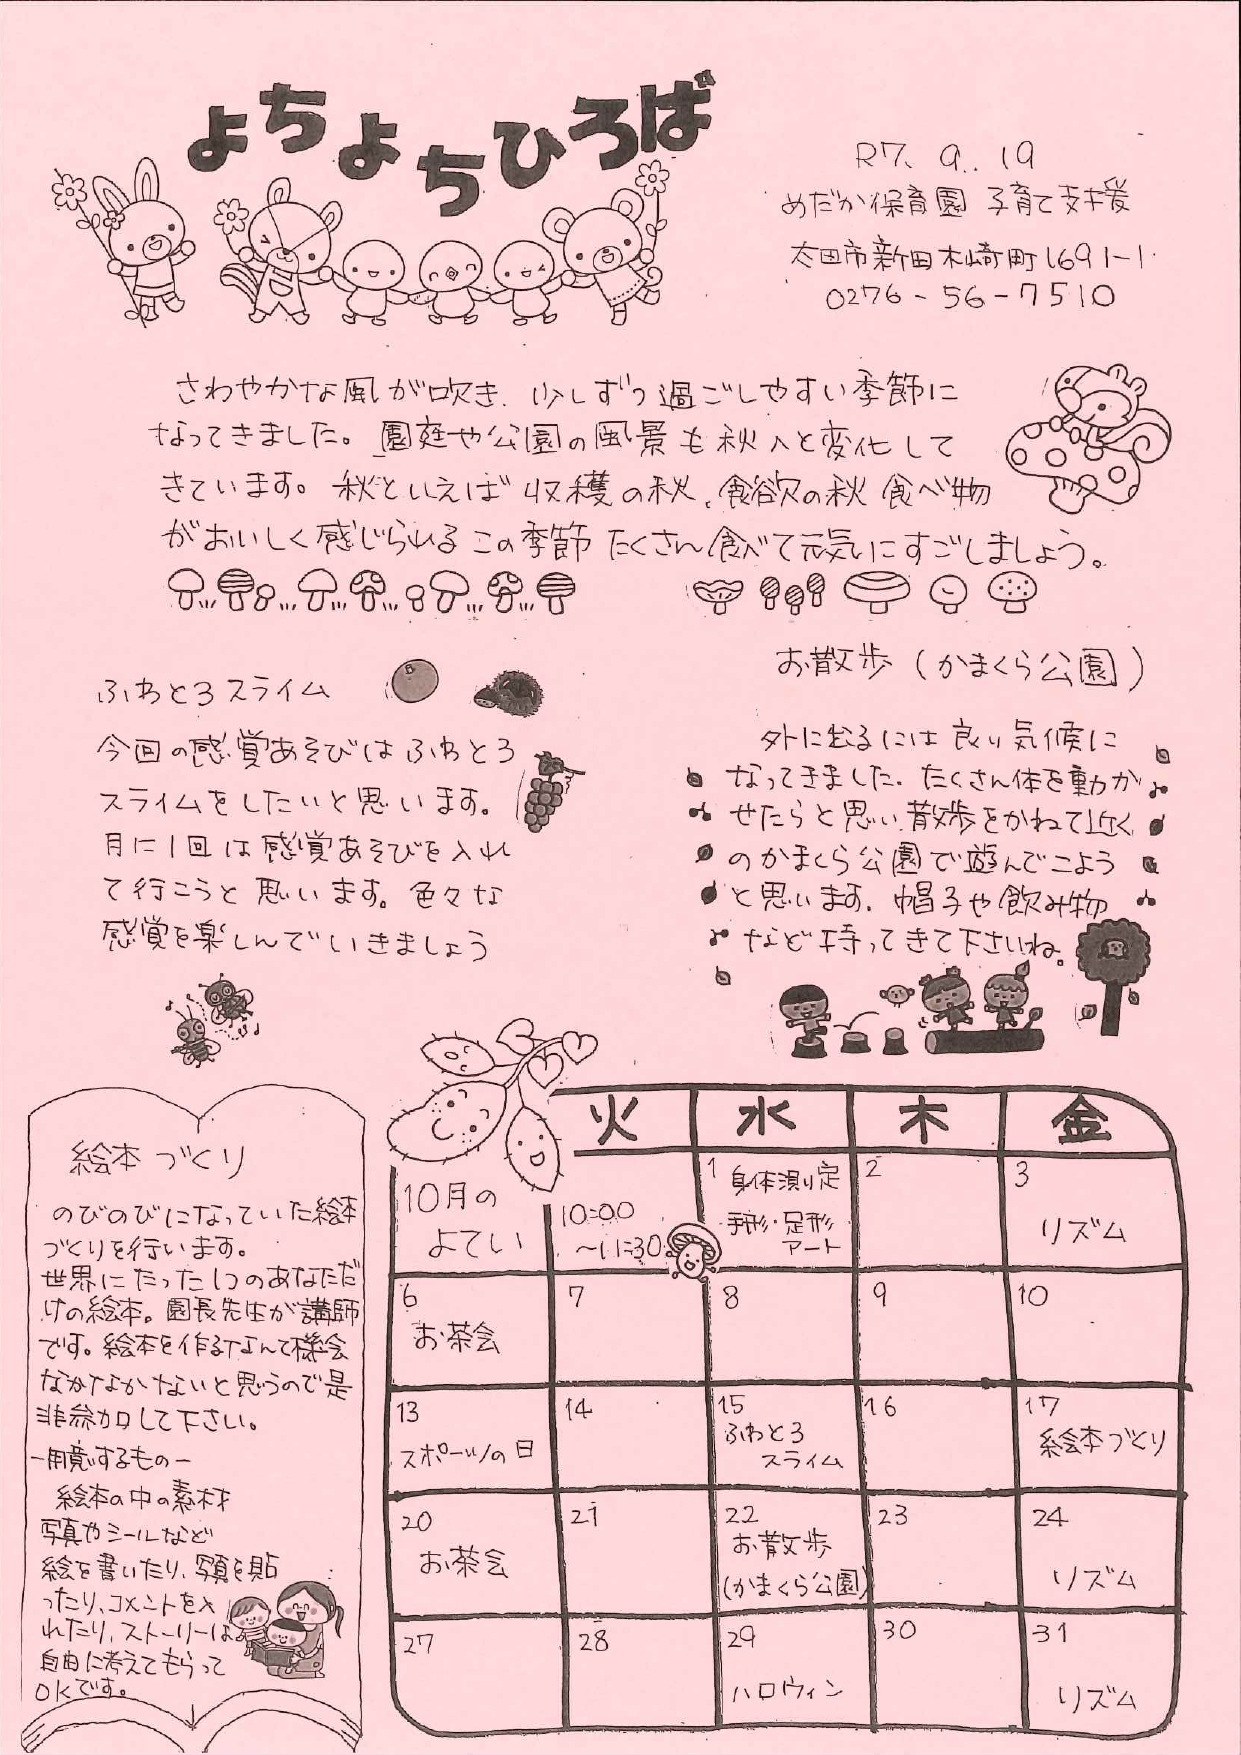 よちよちひろば
R7. 9. 19
めだか保育園 子育て支援
太田市新田木崎町1691-1
0276-56-7510
さわやかな風が吹き、少しずつ過ごしやすい季節に
なってきました。園庭や公園の風景も秋へと変化して
きています。秋といえば収穫の秋、食欲の秋 食べ物
がおいしく感じられるこの季節 たくさん食べて元気にすごしましょう。
ふわとろスライム
今回の感覚あそびはふわとろ
スライムをしたいと思います。
月に1回は感覚あそびを入れ
て行こうと思います。色々な
感覚を楽しんでいきましょう
お散歩(かまくら公園)
外に出るには良い気候に
なってきました。たくさん体を動か
せたらと思い、散歩をかねて近く
のかまくら公園で遊んでこよう
と思います。帽子や飲み物
など持ってきて下さいね。
絵本づくり
のびのびになっていた絵本
づくりを行います。
世界にたった1つのあなただ
けの絵本。園長先生が講師
です。絵本を作るなんて機会
なかなかないと思うので是
非参加して下さい。
-用意するもの-
絵本の中の素材
写真やシールなど
絵を書いたり、写真を貼
ったり、コメントを入
れたり、ストーリーは
自由に考えてもらって
OKです。
火 水 木 金
10月の
よてい
10:00
～11:30
1 身体測定
手形・足形
アート
2
3
リズム
6
お茶会
7
8
9
10
13
スポーツの日
14
15
ふわとろ
スライム
16
17
絵本づくり
20
お茶会
21
22
お散歩
(かまくら公園)
23
24
リズム
27
28
29
ハロウィン
30
31
リズム